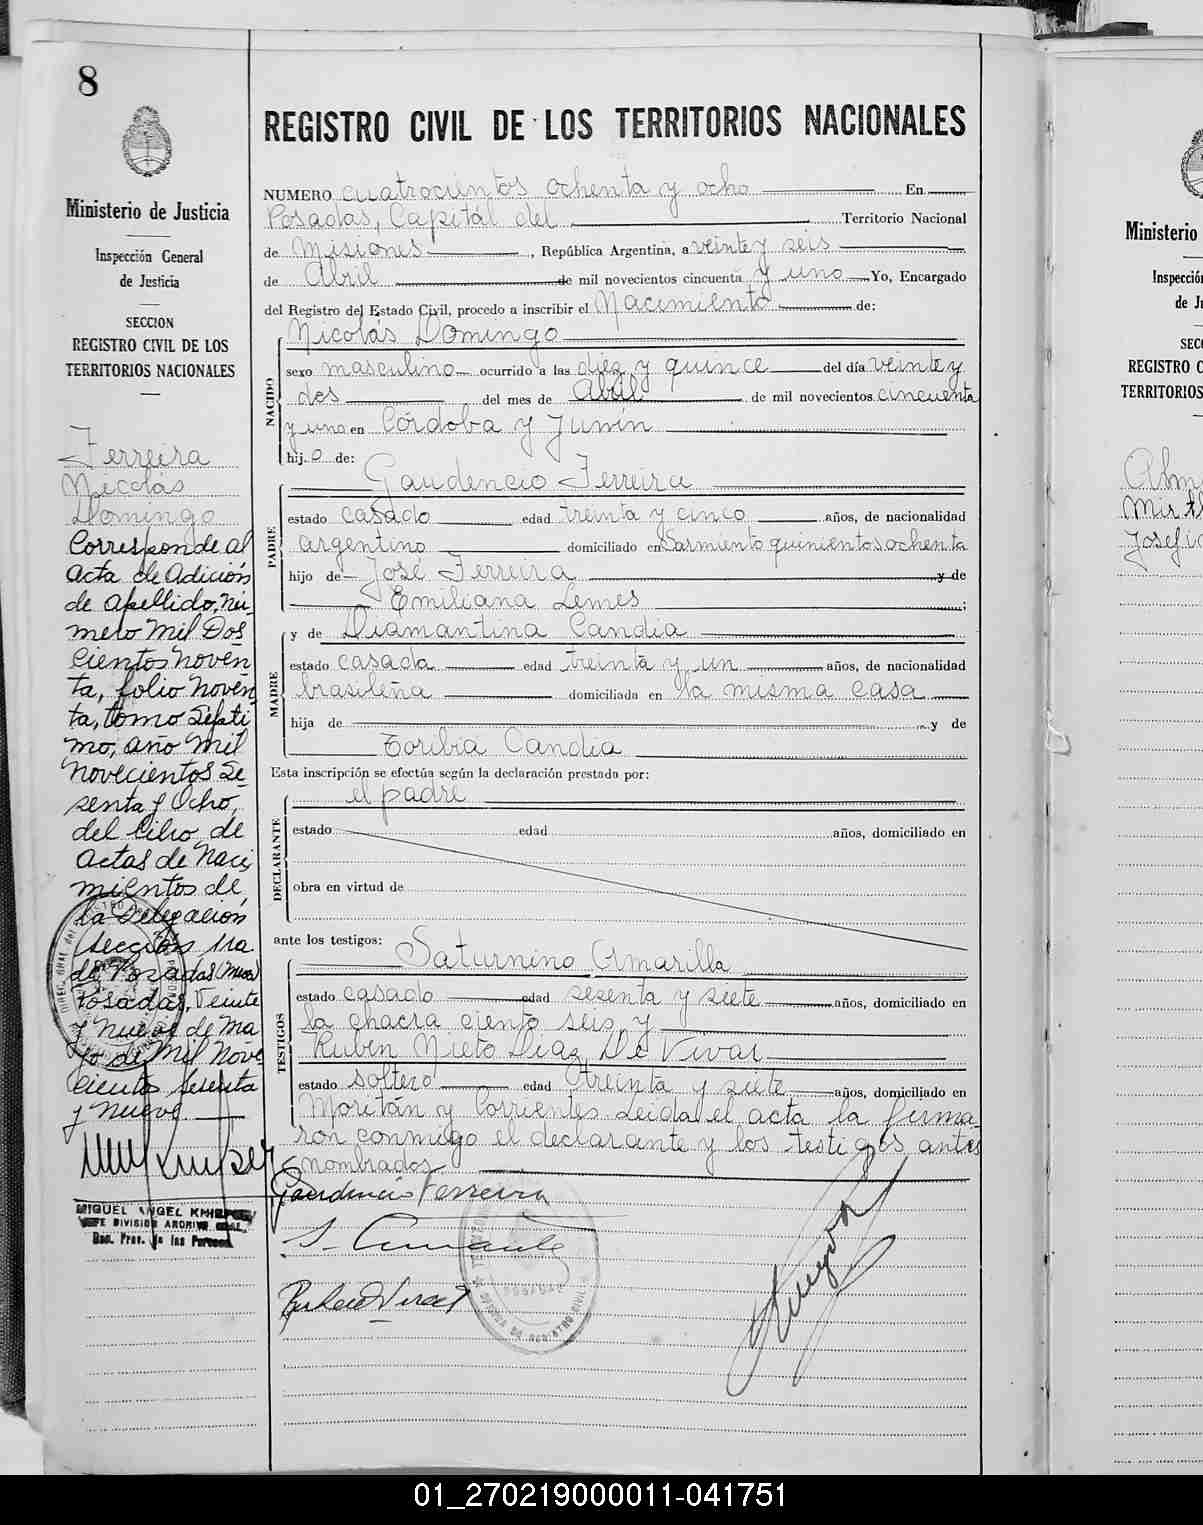 8
Ministerio de Justicia
Inspección General
de Justicia
SECCION
REGISTRO CIVIL DE LOS
TERRITORIOS NACIONALES
Ferreira
Nicolás
Domingo
Corresponde al
acta de Adición
de apellido, Nú-
mero Mil Dos
Cientos noven
ta, folio noven
ta, tomo Septi
mo, año mil
novecientos Se-
senta y Ocho,
del Libro de
actas de Naci
mientos de
la Delegación
Sección 1ra
de Posadas (Mnes)
Posadas, Veinte
y Nueve de Ma
yo de Mil Nove
cientos sesenta
y nueve.
MIGUEL ANGEL
JEFE DIVISION ARCHIVO GRAL.
REGISTRO CIVIL DE LOS TERRITORIOS NACIONALES
NUMERO cuatrocientos ochenta y ocho En
Posadas, Capital del Territorio Nacional
de Misiones, República Argentina, a veinte y seis
de Abril de mil novecientos cincuenta y uno Yo, Encargado
del Registro del Estado Civil, procedo a inscribir el Nacimiento de:
NACIDO
Nicolás Domingo
sexo masculino ocurrido a las diez y quince del día veinte y
dos del mes de Abril de mil novecientos cincuenta
y uno en Córdoba y Junín
hijo de:
PADRE
Gaudencio Ferreira
estado casado edad treinta y cinco años, de nacionalidad
argentino domiciliado en Sarmiento quinientos ochenta
hijo de José Ferreira y de
Emiliana Lemes ;
MADRE
y de Diamantina Candia
estado casada edad treinta y un años, de nacionalidad
brasileña domiciliada en la misma casa
hija de y de
Toribia Candia
Esta inscripción se efectúa según la declaración prestada por:
DECLARANTE
el padre
estado edad años, domiciliado en
obra en virtud de
ante los testigos:
TESTIGOS
Saturnino Amarilla
estado casado edad sesenta y siete años, domiciliado en
la chacra ciento seis y
Rubén Nieto Díaz De Vivar
estado soltero edad treinta y siete años, domiciliado en
Moritán y Corrientes. Leída el acta la firma-
ron conmigo el declarante y los testigos antes
nombrados
Gaudencio Ferreira
Ministerio
Inspección
de Ju
SECC
REGISTRO C
TERRITORIOS
Mirth
Josefi
01_270219000011-041751